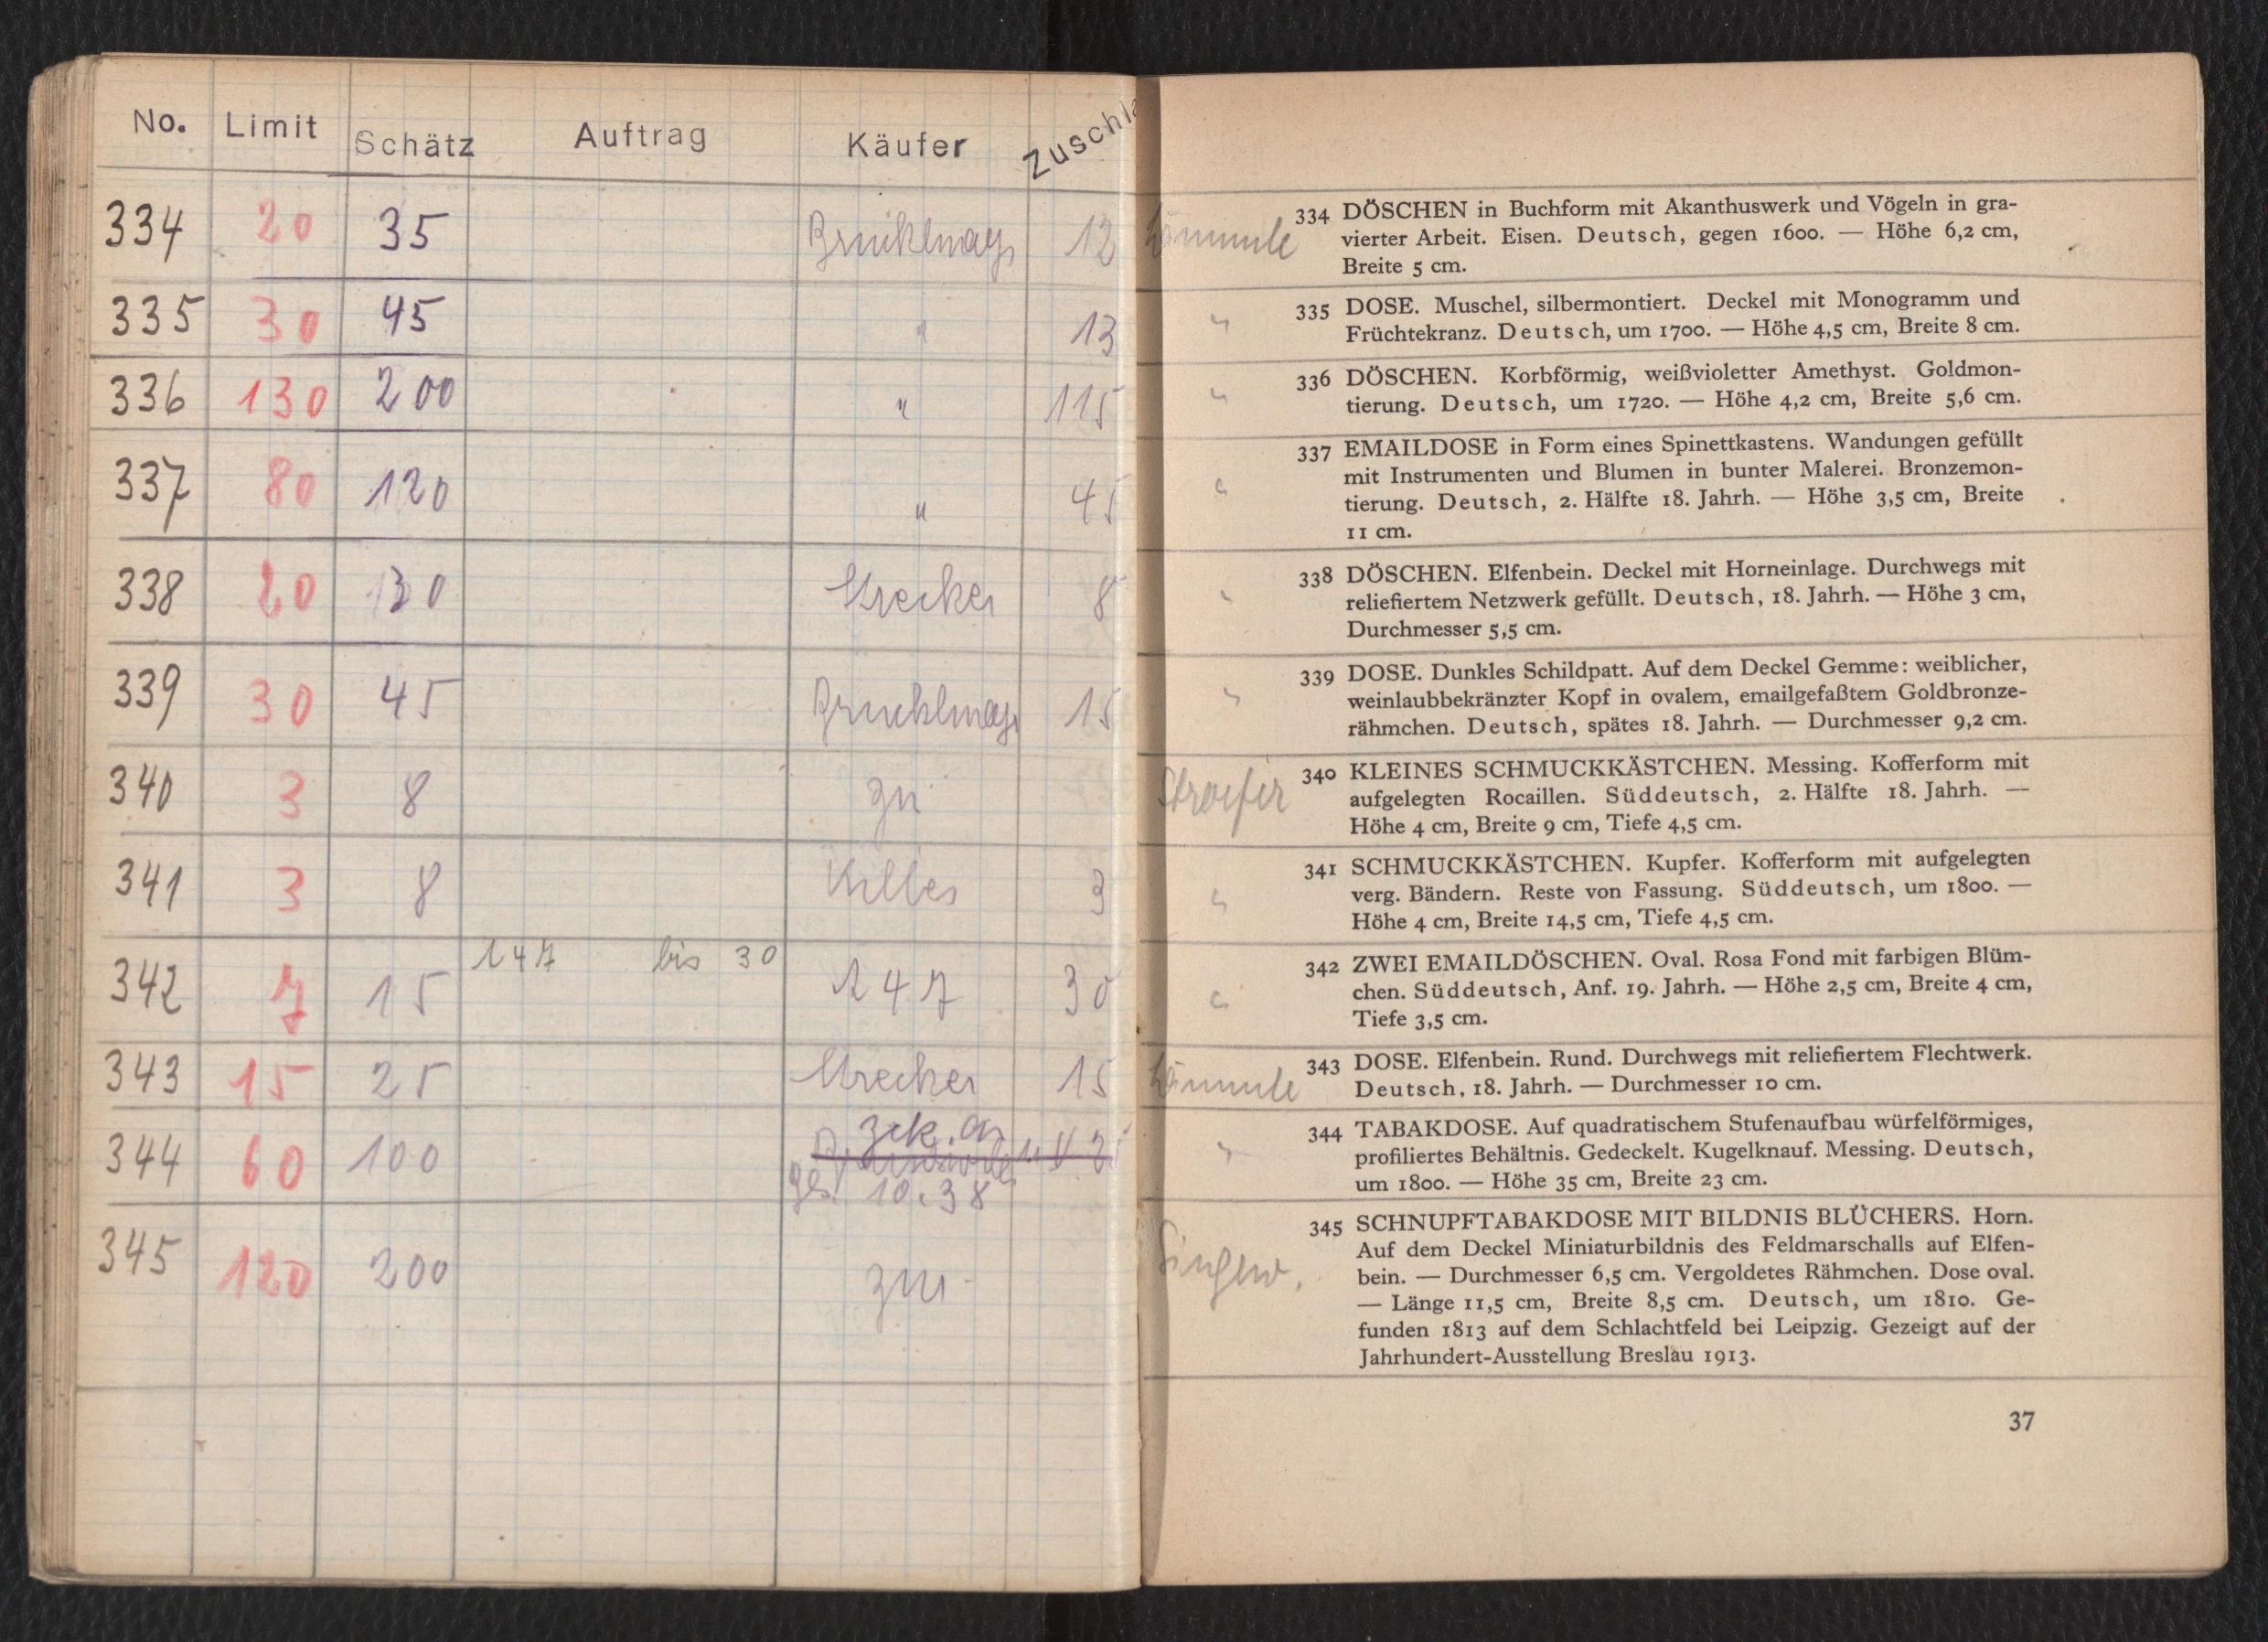 No. Limit Schätz Auftrag Käufer Zuschla
334 20 35 12
335 30 45 " 13
336 130 200 " 115
337 80 120 " 45
338 20 30 8
339 30 45 15
340 3 8 zu
341 3 8 3
147 bis 30
342 7 15 147 30
343 15 25 15
zck. an
344 60 100
ges. 10.38
345 120 200
334 DÖSCHEN in Buchform mit Akanthuswerk und Vögeln in gra-
vierter Arbeit. Eisen. Deutsch, gegen 1600. — Höhe 6,2 cm,
Breite 5 cm.
335 DOSE. Muschel, silbermontiert. Deckel mit Monogramm und
Früchtekranz. Deutsch, um 1700. — Höhe 4,5 cm, Breite 8 cm.
336 DÖSCHEN. Korbförmig, weißvioletter Amethyst. Goldmon-
tierung. Deutsch, um 1720. — Höhe 4,2 cm, Breite 5,6 cm.
337 EMAILDOSE in Form eines Spinettkastens. Wandungen gefüllt
mit Instrumenten und Blumen in bunter Malerei. Bronzemon-
tierung. Deutsch, 2. Hälfte 18. Jahrh. — Höhe 3,5 cm, Breite
11 cm.
338 DÖSCHEN. Elfenbein. Deckel mit Horneinlage. Durchwegs mit
reliefiertem Netzwerk gefüllt. Deutsch, 18. Jahrh. — Höhe 3 cm,
Durchmesser 5,5 cm.
339 DOSE. Dunkles Schildpatt. Auf dem Deckel Gemme: weiblicher,
weinlaubbekränzter Kopf in ovalem, emailgefaßtem Goldbronze-
rähmchen. Deutsch, spätes 18. Jahrh. — Durchmesser 9,2 cm.
340 KLEINES SCHMUCKKÄSTCHEN. Messing. Kofferform mit
aufgelegten Rocaillen. Süddeutsch, 2. Hälfte 18. Jahrh. —
Höhe 4 cm, Breite 9 cm, Tiefe 4,5 cm.
341 SCHMUCKKÄSTCHEN. Kupfer. Kofferform mit aufgelegten
verg. Bändern. Reste von Fassung. Süddeutsch, um 1800. —
Höhe 4 cm, Breite 14,5 cm, Tiefe 4,5 cm.
342 ZWEI EMAILDÖSCHEN. Oval. Rosa Fond mit farbigen Blüm-
chen. Süddeutsch, Anf. 19. Jahrh. — Höhe 2,5 cm, Breite 4 cm,
Tiefe 3,5 cm.
343 DOSE. Elfenbein. Rund. Durchwegs mit reliefiertem Flechtwerk.
Deutsch, 18. Jahrh. — Durchmesser 10 cm.
344 TABAKDOSE. Auf quadratischem Stufenaufbau würfelförmiges,
profiliertes Behältnis. Gedeckelt. Kugelknauf. Messing. Deutsch,
um 1800. — Höhe 35 cm, Breite 23 cm.
345 SCHNUPFTABAKDOSE MIT BILDNIS BLÜCHERS. Horn.
Auf dem Deckel Miniaturbildnis des Feldmarschalls auf Elfen-
bein. — Durchmesser 6,5 cm. Vergoldetes Rähmchen. Dose oval.
— Länge 11,5 cm, Breite 8,5 cm. Deutsch, um 1810. Ge-
funden 1813 auf dem Schlachtfeld bei Leipzig. Gezeigt auf der
Jahrhundert-Ausstellung Breslau 1913.
37